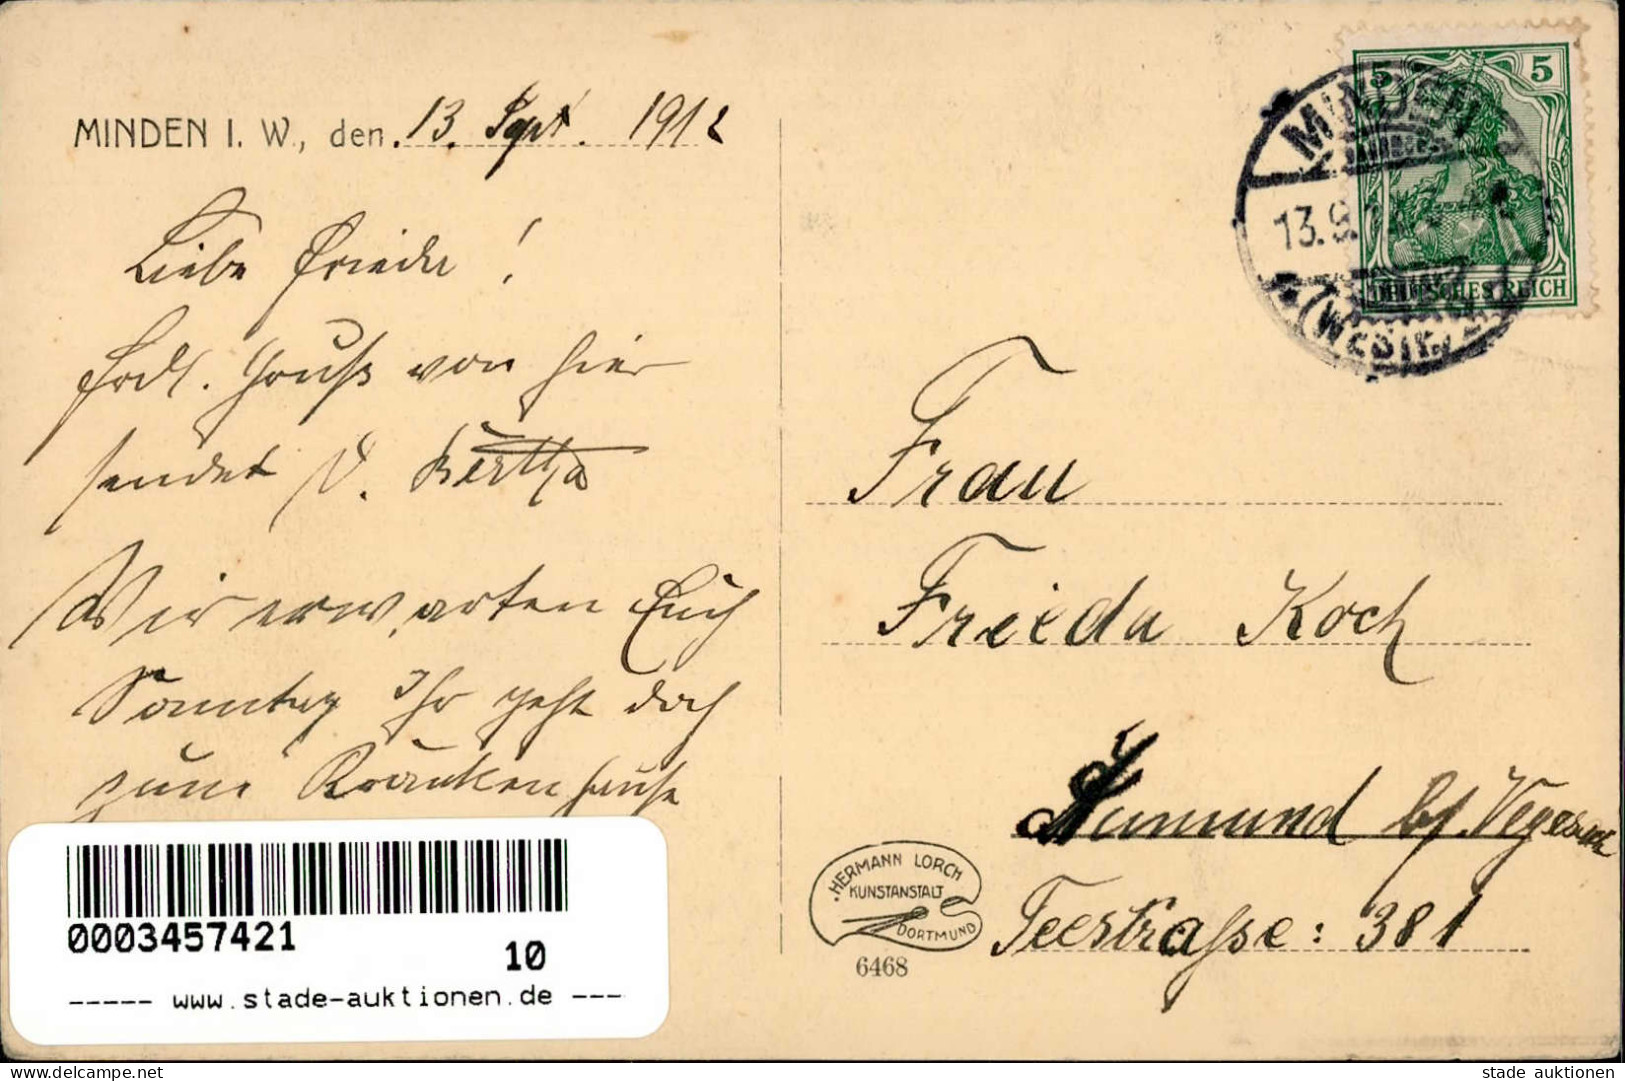 MINDEN I. W., den 13. Sept. 1912
Liebe Frieda!
Herzl. Gruß von hier
sendet D. Bertha
Wir erwarten Euch
Sonntag Ihr geht doch
zum Krankenhause
5 5
MINDEN
13.9.
(WESTF.)
DEUTSCHES REICH
Frau
Frieda Koch
Aumund b/. Vegesack
Teestraße: 381
HERMANN LORCH
KUNSTANSTALT
DORTMUND
6468
0003457421
10
----- www.stade-auktionen.de ---
stade auktionen